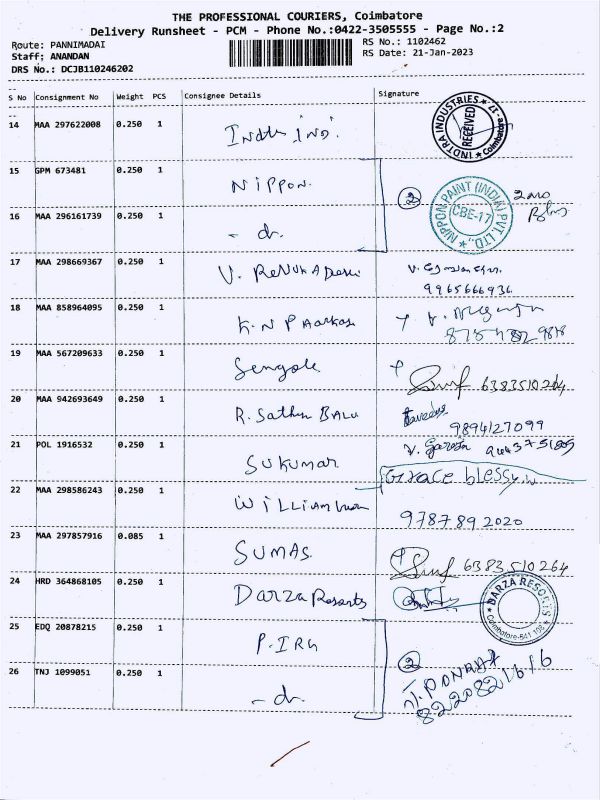 THE PROFESSIONAL COURIERS, Coimbatore
Delivery Runsheet - PCM - Phone No.:0422-3505555 - Page No.:2
Route: PANNIMADAI
RS No.: 1102462
Staff: ANANDAN
RS Date: 21-Jan-2023
DRS No.: DCJB110246202
S No Consignment No Weight PCS Consignee Details Signature
14 MAA 297622008 0.250 1
INDTRA INDUSTRIES
RECEIVED
Coimbatore-17
15 GPM 673481 0.250 1 Nippon.
2
NIPPON PAINT (INDIA) PVT. LTD.,
CBE-17
16 MAA 296161739 0.250 1 - do.
17 MAA 298669367 0.250 1 V. Renuka Devi
9965666936
18 MAA 858964095 0.250 1 K.N
19 MAA 567209633 0.250 1
6383510264
20 MAA 942693649 0.250 1 R. Sathya BALU
9894127099
21 POL 1916532 0.250 1 Sukumar
V. Saroja
22 MAA 298586243 0.250 1 William
Grace blessy
9787892020
23 MAA 297857916 0.085 1 SUMAS.
6383510264
24 HRD 364868105 0.250 1 Darza Resorts
DARZA RESORTS
Coimbatore-641 108
25 EDQ 20878215 0.250 1
2
26 TNJ 1099051 0.250 1 - do.
8220821616